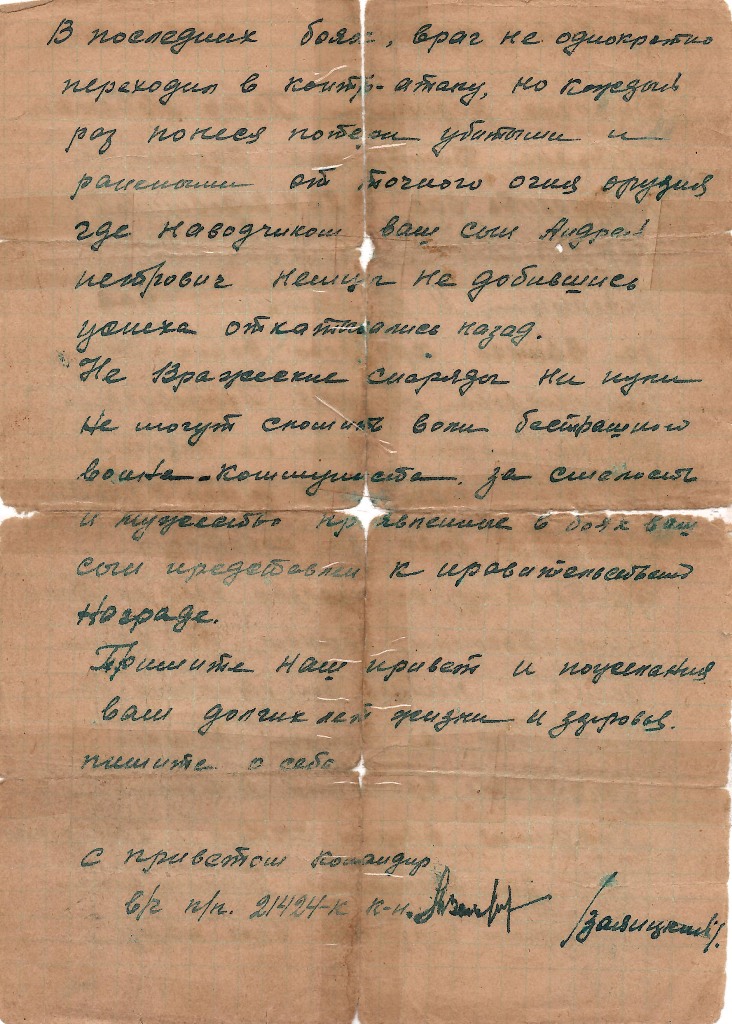 В последних боях, враг не однократно
переходил в контр-атаку, но каждый
раз понеся потери убитыми и
ранеными от точного огня орудия
где наводчиком ваш сын Андрей
петрович немцы не добившись
успеха откатывались назад.
Не Вражеские снаряды ни пули
не могут сломить воли бестрашного
воина-коммуниста. за смелость
и мужество проявленные в боях ваш
сын представлен к правительственой
Награде.
Примите наш привет и пожелания
вам долгих лет жизни и здоровья.
пишите о себе
С приветом командир
в/ч п/п. 21424-к к-н.
/Заляцкий/.